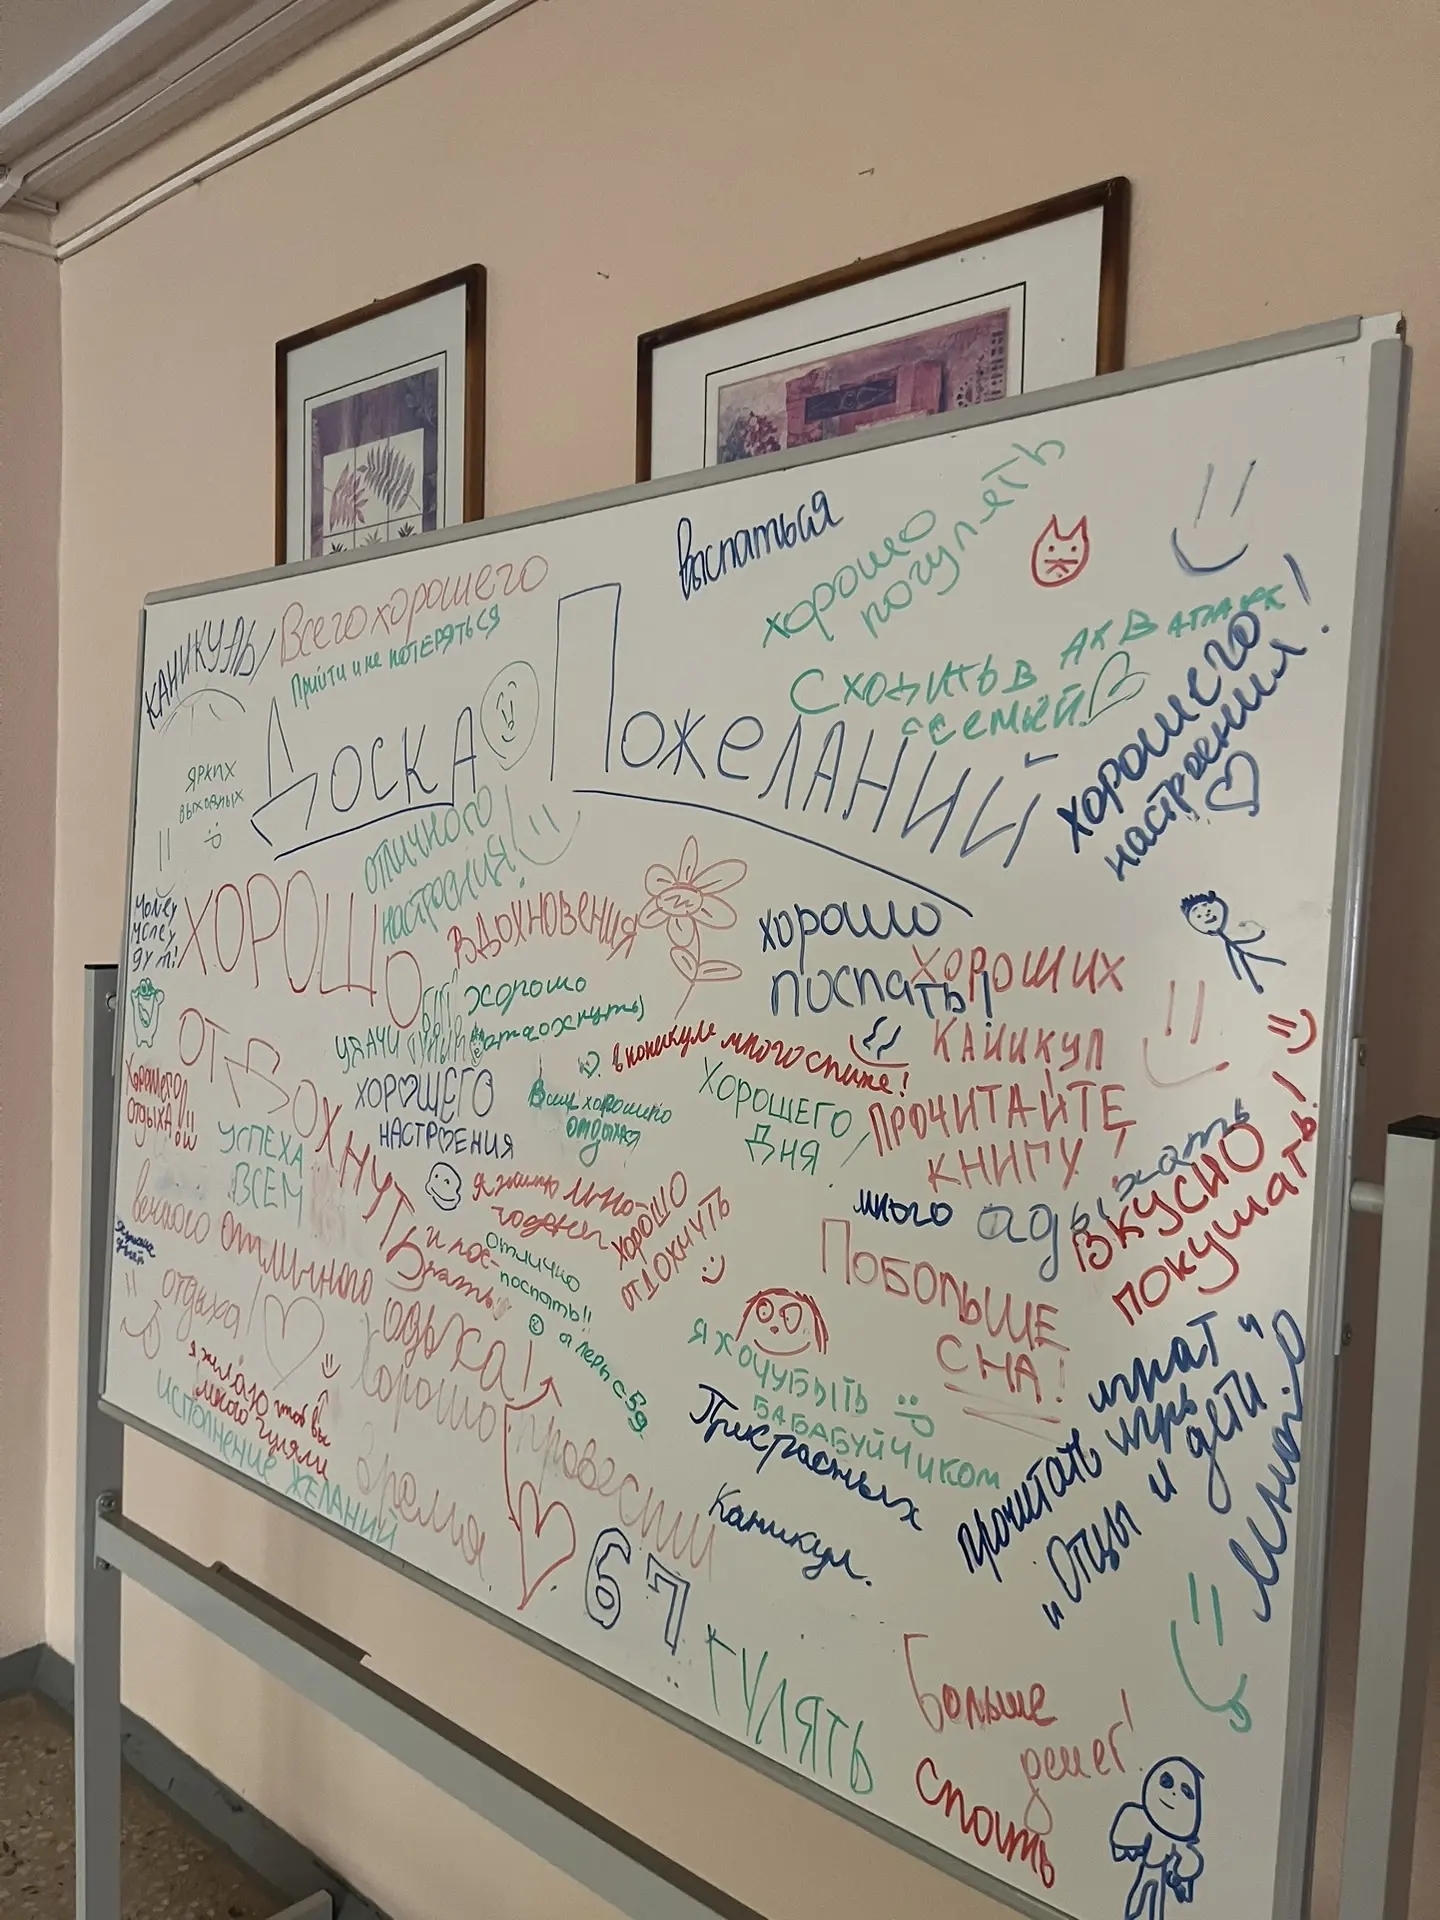 КАНИКУЛЫ
Всего хорошего
Прийти и не потеряться
выспаться
хорошо
погулять
Сходить в АКВАпарк
с семьёй
Доска Пожеланий
хорошего
настроения!
ярких
выходных
отличного
настроения!
Money
money
ХОРОШО
ОТДОХНУТЬ
вдохновения
хорошо
поспать!
ХОРОШИХ
КАНИКУЛ
хорошо
удачи
ХОРОШЕГО
НАСТРОЕНИЯ
много
ХОРОШЕГО
ДНЯ
ПРОЧИТАЙТЕ
КНИГУ
Хорошего
отдыха
УСПЕХА
ВСЕМ
Всем хорошего
отдыха
много
ВКУСНО
покушать!
вечного
отдыха!
отличного
отдыха!
и пос-
отлично
поспать!!
хорошо
отдохнуть
Побольше
СНА!
Я ХОЧУ БЫТЬ
БАБАБУЙЧИКОМ
я желаю чтоб вы
много гуляли
ИСПОЛНЕНИЕ ЖЕЛАНИЙ
Хорошо провести
время
каникул.
прочитать
"Отцы и дети"
много
67
ГУЛЯТЬ
Больше
денег!
спать